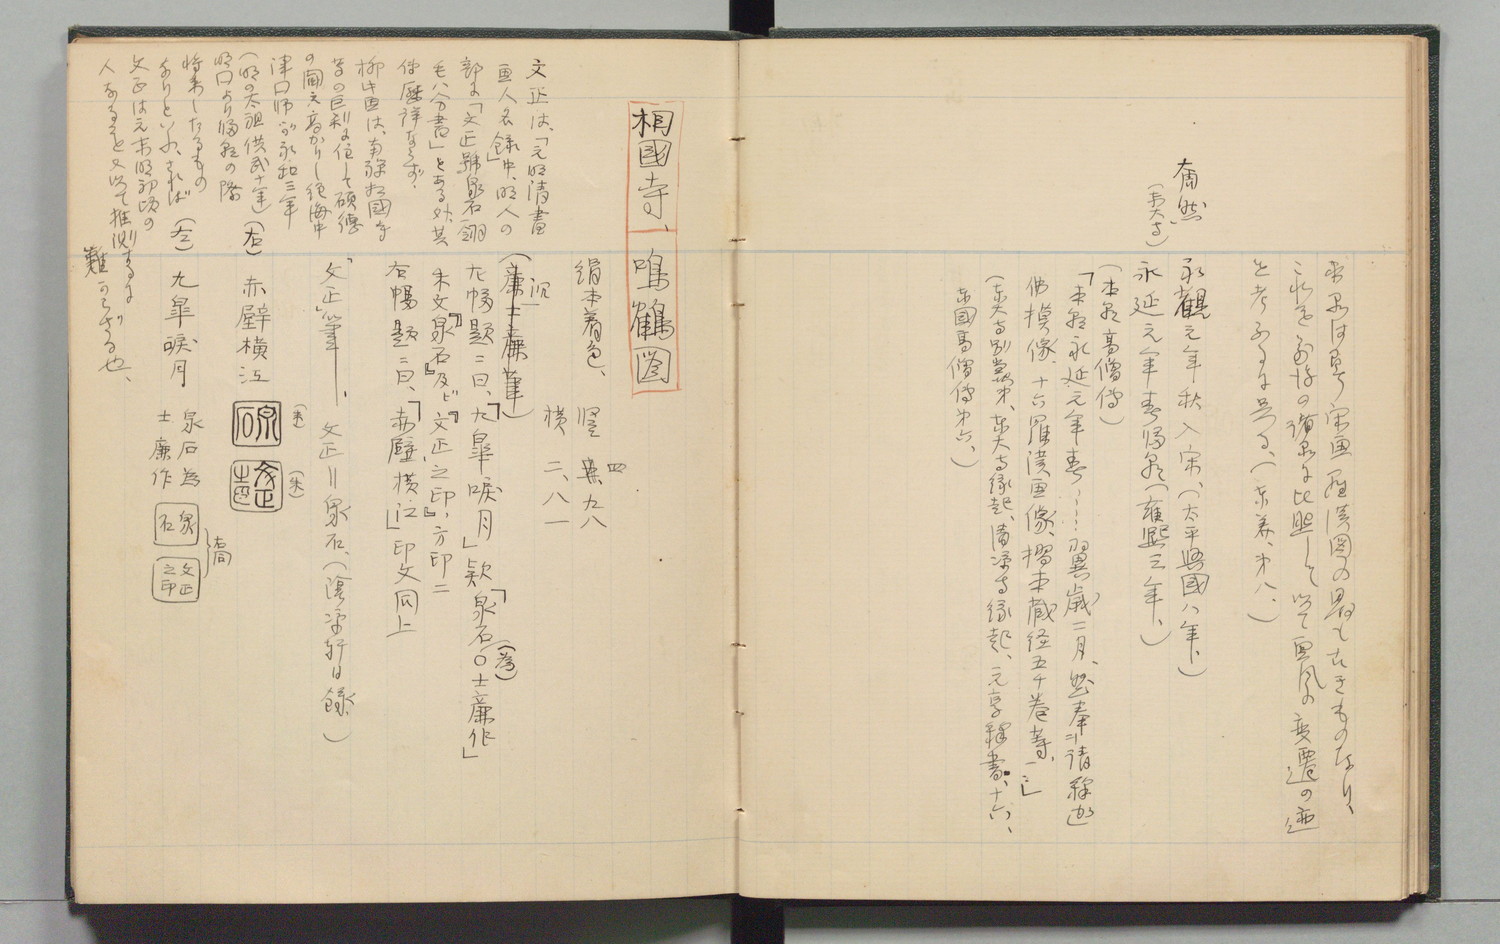 本図は我ガ宋画羅漢図の最も古きものなり、
これを前後の諸図に比照して以て画風の変遷の迹
を考ふるに足る、(東美、第八、)
奝然
(東大寺)
永観元年秋入宋、(太平興国八年、)
永延元年春帰朝(雍熙三年、)
(本朝高僧伝)
「本朝永延元年春……翼歳二月、然奉ニ請釈迦
仏模像、十六羅漢画像、摺本蔵経五千巻等、一ミ」
(東大寺別当第、東大寺縁起、清凉寺縁起、元亨釈書、十六、
本国高僧伝第六、)
相國寺、鳴鶴図
絹本着色、竪 四、九八
横 二、八一
文正は、「元明清書
画人名録」中、明人の
部に「文正號泉石、翎
毛八分書」とある外、其
伝歴詳ならず、
柳此画は、旧政相国寺
等の巨刹に住して碩徳
の聞え高かりし絶海中
津口師が永和三年
(明の太祖洪武十年)
明口より帰朝の際
将来したるもの
なりといふ、されば
文正は元末明初頃の
人なることを以て推測するに
難からざる也、
(廉士廉筆)
左幅題ニ曰、「九皐唳月」款「泉石〇士廉作」
(為)
朱文泉石及ビ『文正之印』方印二
右幅題ニ曰、「赤壁横江」印文同上
「文正」筆、文正=泉石、(蔭凉軒日録、)
(右) 赤壁横江 (朱) (朱)
(左) 九皐唳月 泉石為
士廉作
泉石
文正之印
右同